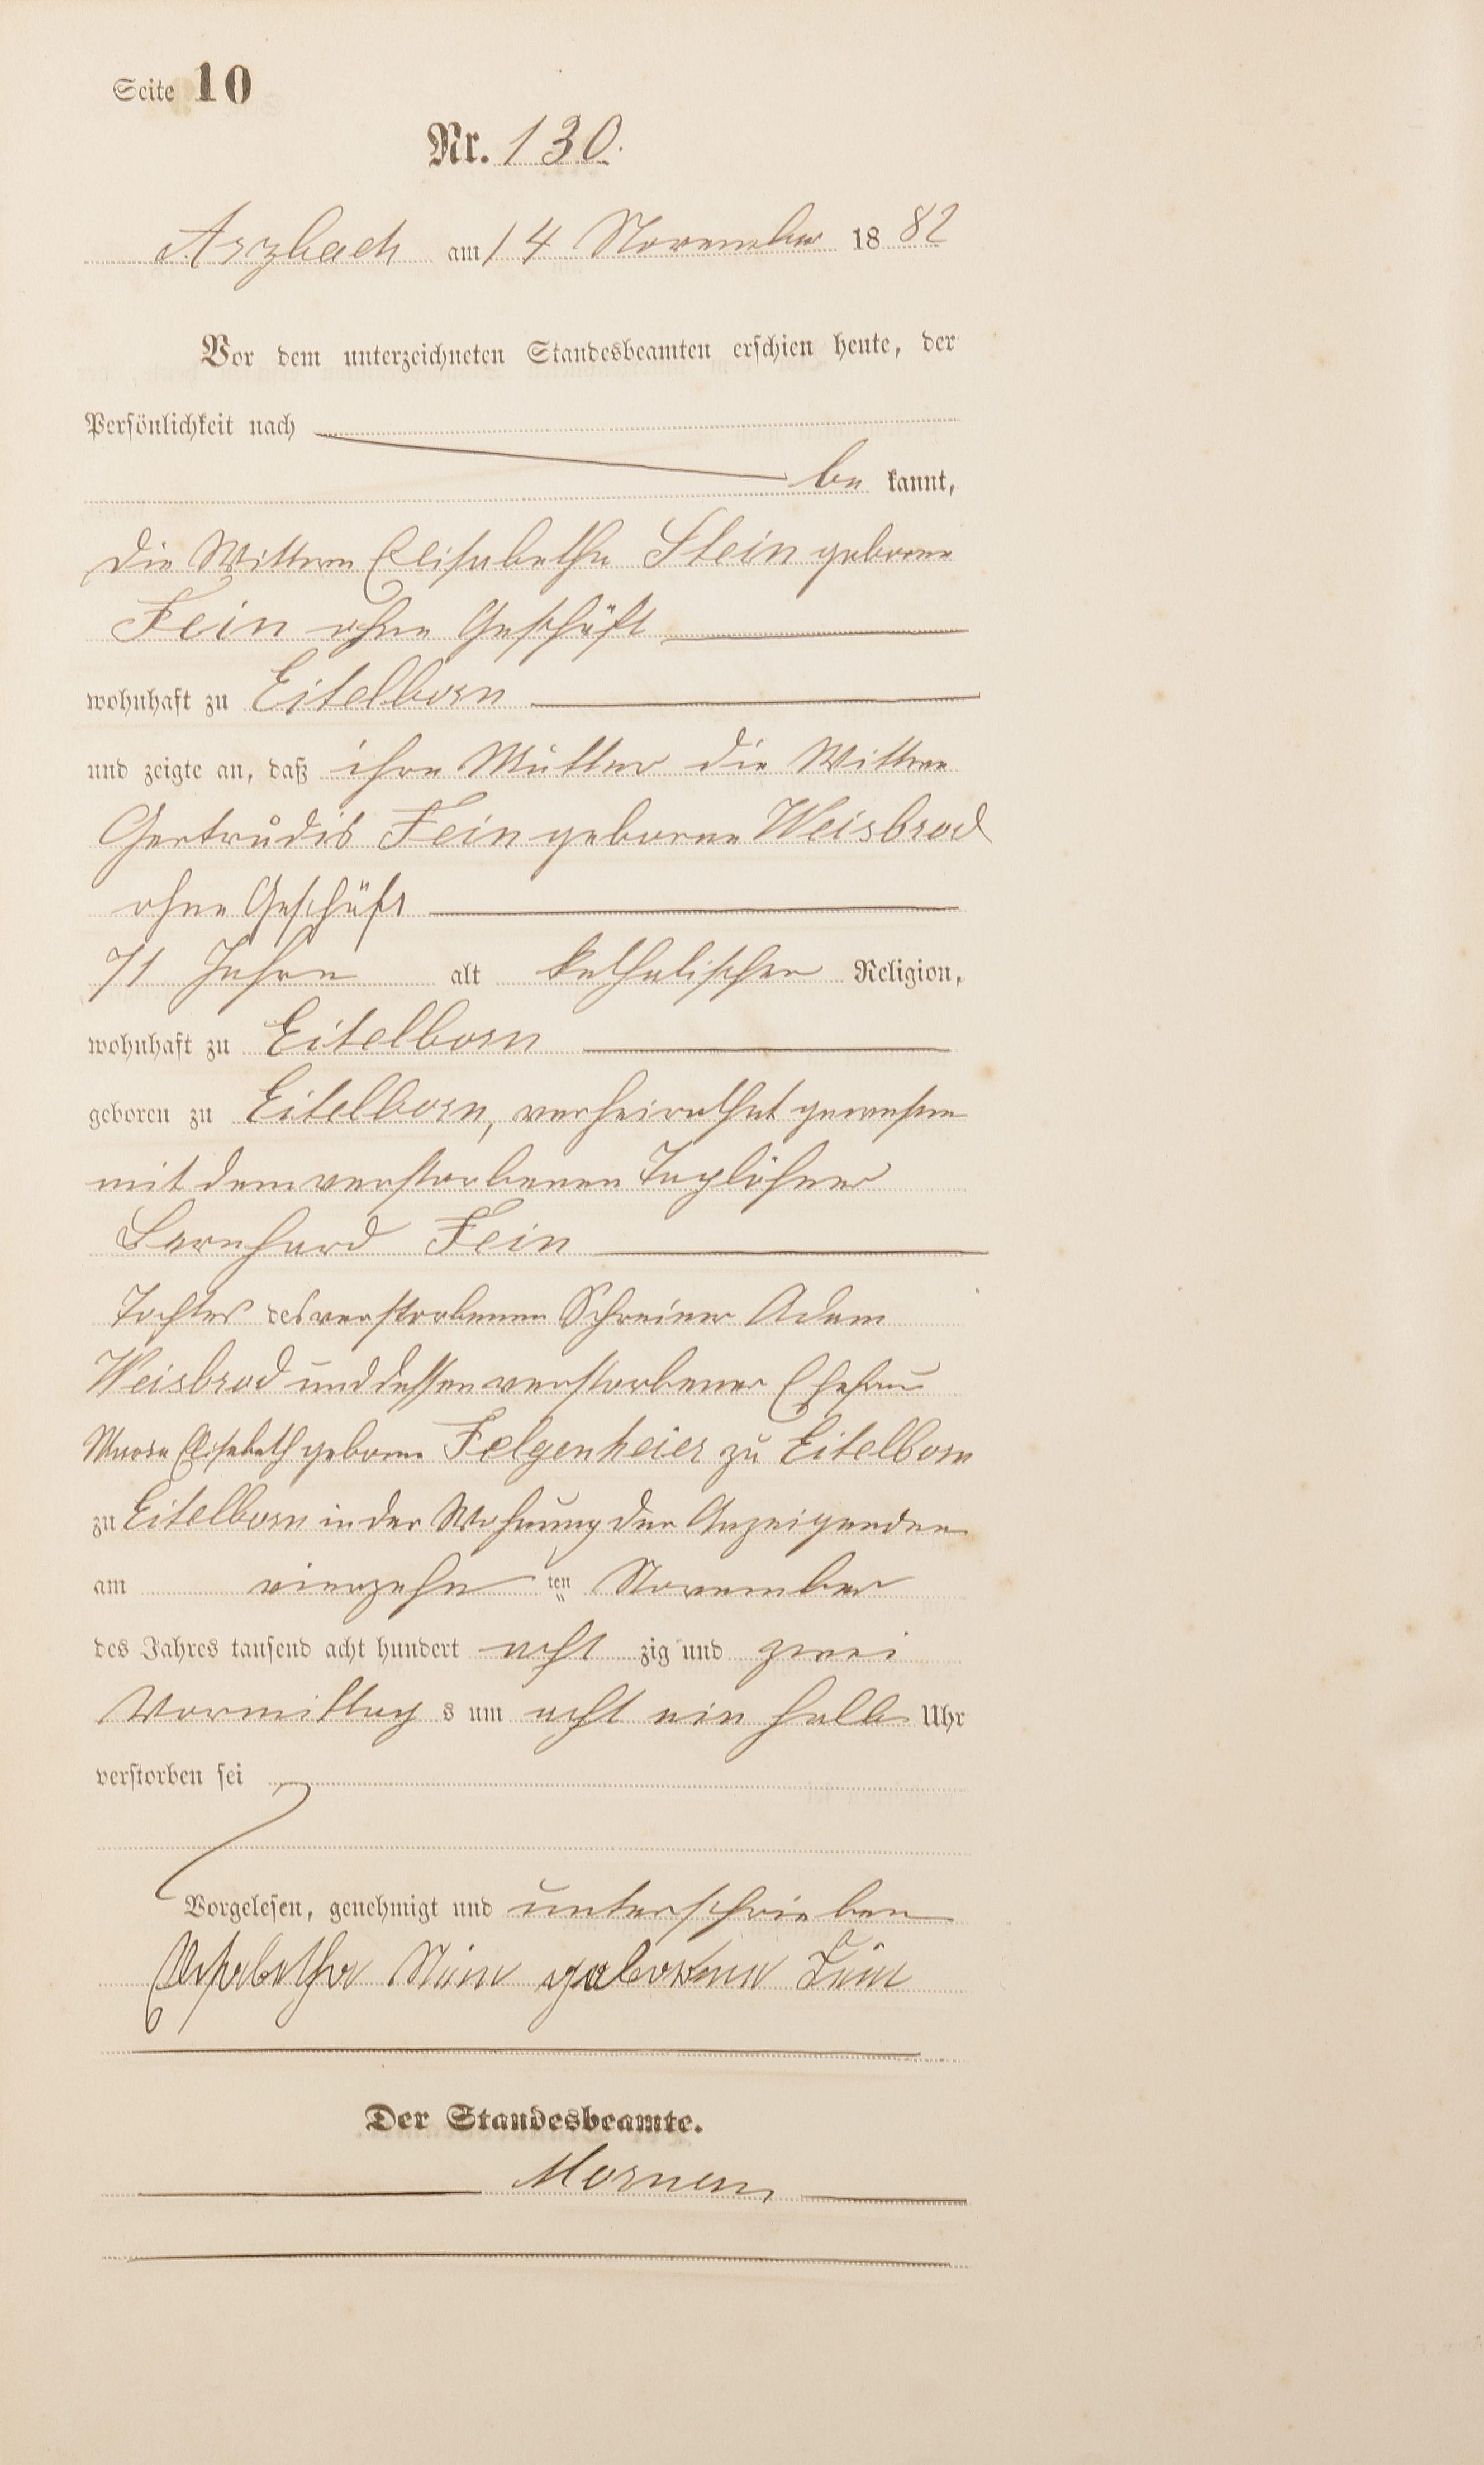 Seite 10
Nr. 130.
Arzbach am 14 November 1882
Vor dem unterzeichneten Standesbeamten erschien heute, der
Persönlichkeit nach
be kannt,
die Wittwe Elisabetha Stein geborne
Fein ohne Geschäft
wohnhaft zu Eitelborn
und zeigte an, daß ihre Mutter die Wittwe
Gertrudis Fein geborne Weisbrod
ohne Geschäft
71 Jahre alt katholischer Religion,
wohnhaft zu Eitelborn
geboren zu Eitelborn, verheirathet gewesen
mit dem verstorbenen Taglöhner
Bernhard Fein
Tochter des verstorbenen Schreiner Adam
Weisbrod und dessen verstorbener Ehefrau
Maria Elisabeth geborne Felgenheier zu Eitelborn
zu Eitelborn in der Wohnung der Anzeigenden
am vierzehn ten November
des Jahres tausend acht hundert acht zig und zwei
Vormittag s um acht ein halb Uhr
verstorben sei
Vorgelesen, genehmigt und unterschrieben
Elisabetha Stein geborene Fein
Der Standesbeamte.